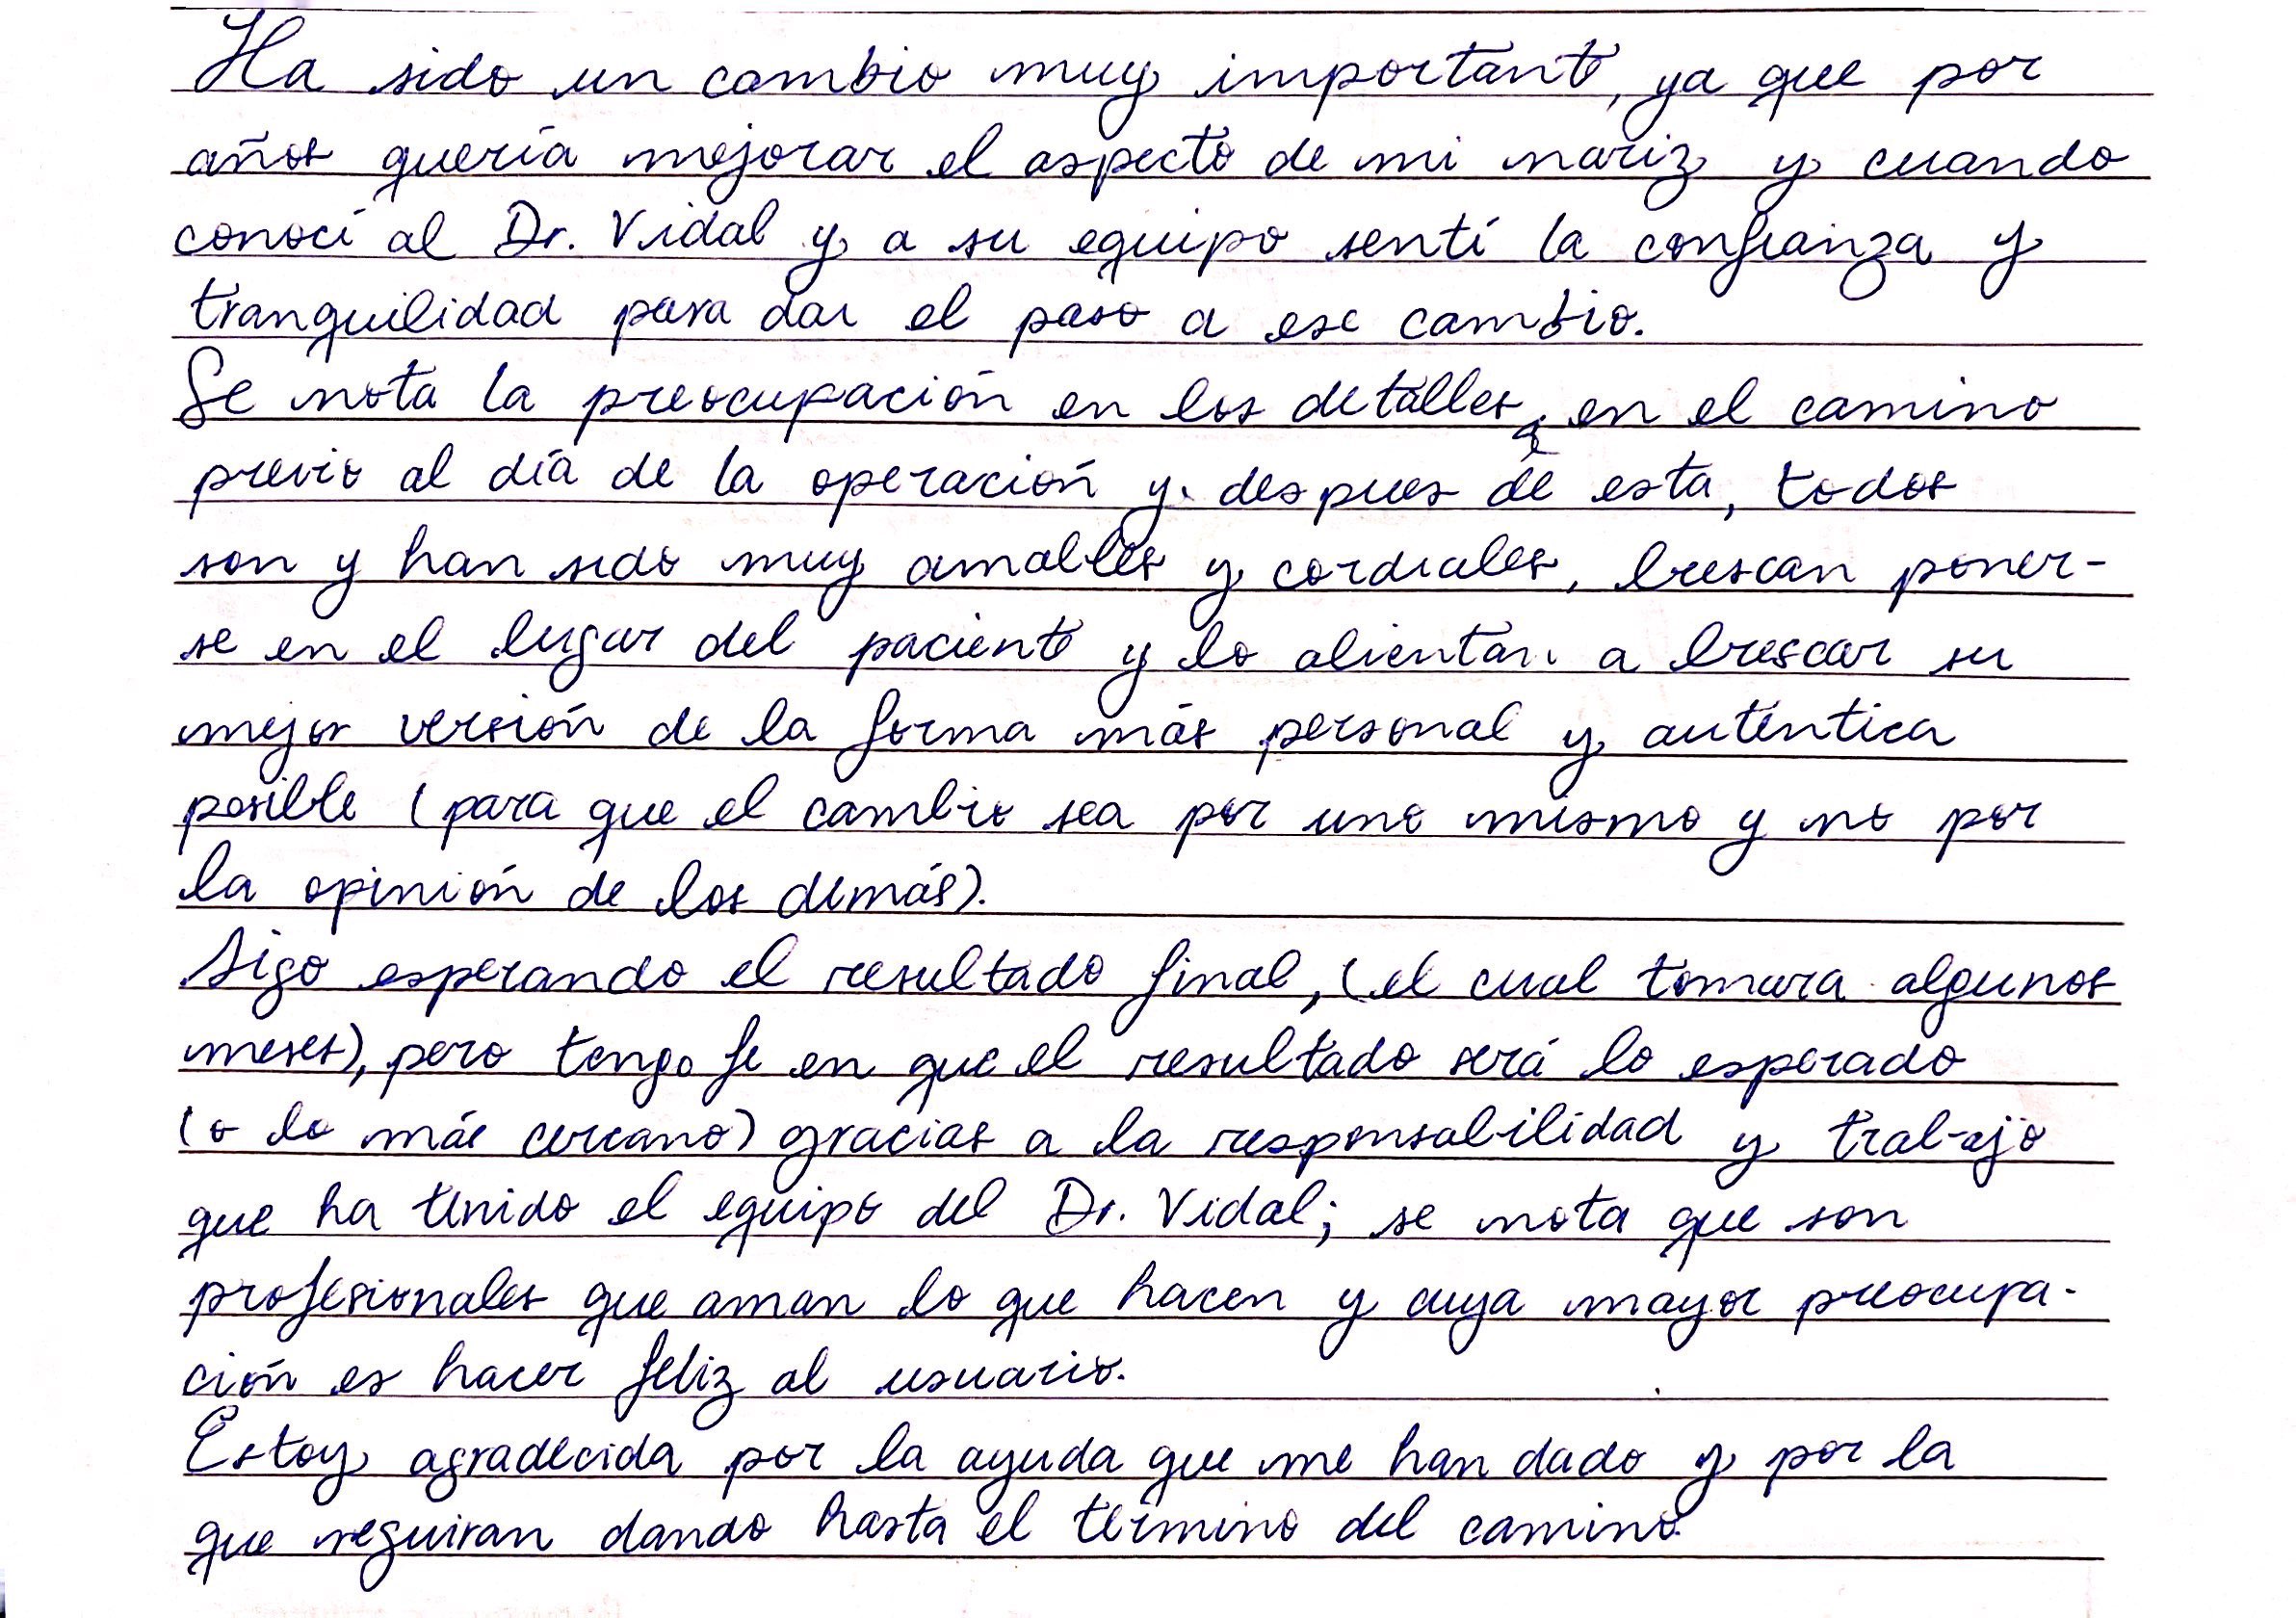 Ha sido un cambio muy importante, ya que por
años quería mejorar el aspecto de mi nariz y cuando
conocí al Dr. Vidal y a su equipo sentí la confianza y
tranquilidad para dar el paso a ese cambio.
Se nota la preocupación en los detalles, en el camino
previo al día de la operación y despues de esta, todos
son y han sido muy amables y cordiales, buscan poner-
se en el lugar del paciente y lo alientan a buscar su
mejor versión de la forma más personal y auténtica
posible (para que el cambio sea por uno mismo y no por
la opinión de los demás).
Sigo esperando el resultado final, (el cual tomara algunos
meses), pero tengo fe en que el resultado será lo esperado
(o lo más cercano) gracias a la responsabilidad y trabajo
que ha tenido el equipo del Dr. Vidal; se nota que son
profesionales que aman lo que hacen y cuya mayor preocupa-
ción es hacer feliz al usuario.
Estoy agradecida por la ayuda que me han dado y por la
que seguiran dando hasta el término del camino.